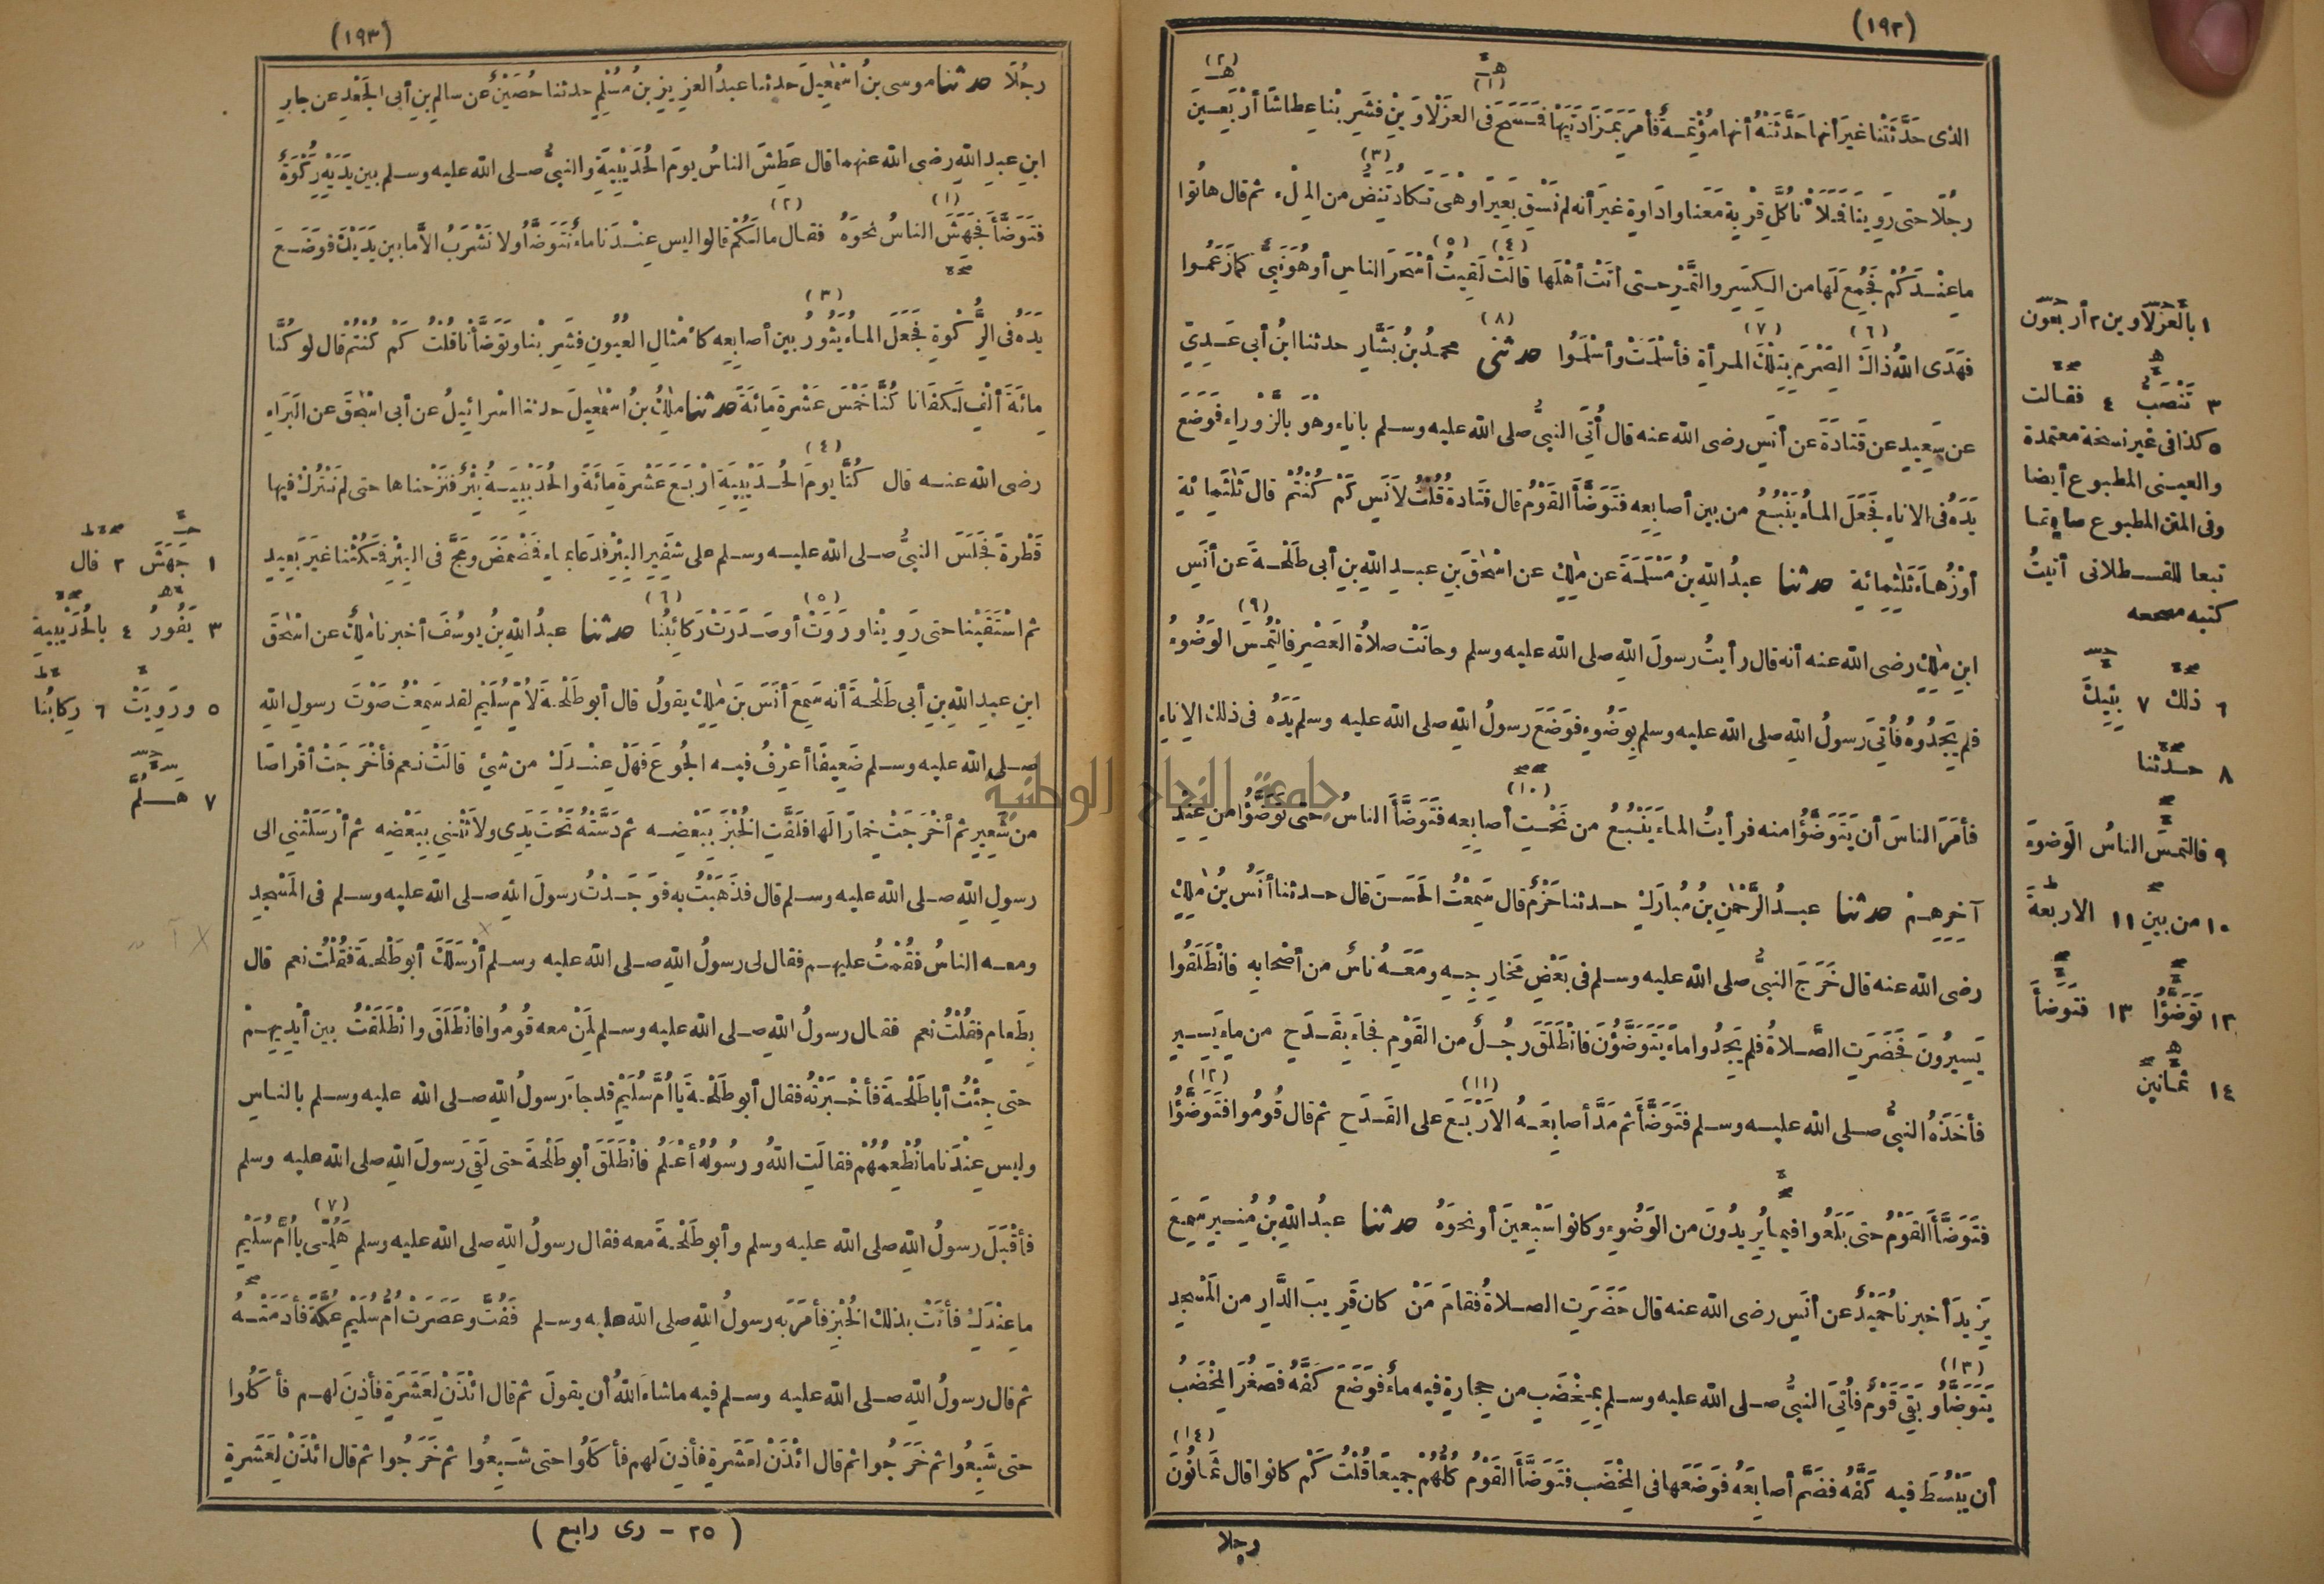 (١٩٢)
الذى حَدَّثَتْنا غيرَ أنها حَدَّثَتْهُ أنها مُؤْتِمَةٌ فأمَرَ بمَزَادَتَيْها فمَسَحَ فى العَزْلَاوَيْنِ فشَرِبْنا عِطاشًا أرْبَعِينَ
رجُلًا حتى رَوِينا فَمَلَأْنا كُلَّ قِرْبةٍ مَعَنا واداوةٍ غيرَ أنه لم نَسْقِ بَعِيرًا وهْىَ تَكادُ تَنِضُّ من المِلْءِ ثم قال هاتُوا
ما عِنْدَكُمْ فجُمِعَ لَها من الكِسَرِ والتَّمْرِ حتى أتَتْ أهْلَها قالَتْ لَقِيتُ أسْحَرَ الناسِ أو هُوَ نَبِىٌّ كما زَعَمُوا
فهَدَى اللهُ ذاكَ الصِّرْمَ بِتِلْكَ المرأةِ فأسْلَمَتْ وأسْلَمُوا حدثنى محمدُ بنُ بَشَّارٍ حدثنا ابنُ أبى عَدِىٍّ
عن سَعِيدٍ عن قَتادَةَ عن أنَسٍ رضى الله عنه قال أُتِىَ النبىُّ صلى الله عليه وسلم باناءٍ وهْوَ بالزَّوْراءِ فوَضَعَ
يَدَهُ فى الاناءِ فَجَعَلَ الماءُ يَنْبُعُ من بين أصابِعِه فتَوَضَّأَ القَوْمُ قال قَتادةُ قُلْتُ لأنَسٍ كَمْ كُنْتُمْ قال ثَلٰثَمِائةٍ
أوْزُهاءَ ثَلٰثِمائةٍ حدثنا عبدُ اللهِ بنُ مَسْلَمَةَ عن مٰلِكٍ عن اسْحٰقَ بنِ عبدِ اللهِ بنِ أبى طَلْحةَ عن أنَسِ
ابنِ مٰلِكٍ رضى الله عنه أنه قال رأيتُ رسولَ اللهِ صلى الله عليه وسلم وحانَتْ صلاةُ العَصْرِ فالْتُمِسَ الوَضُوءُ
فلم يَجِدُوهُ فأُتِىَ رَسولُ اللهِ صلى الله عليه وسلم بوَضُوءٍ فوَضَعَ رسولُ اللهِ صلى الله عليه وسلم يَدَهُ فى ذلك الاِناءِ
فأمَرَ الناسَ أن يَتَوَضَّؤُا منه فرأيتُ الماءَ يَنْبُعُ من تَحْتِ أصابِعِه فتَوَضَّأَ الناسُ حتى تَوَضَّؤُا من عِنْدِ
آخِرِهِمْ حدثنا عبدُ الرَّحْمٰنِ بنُ مُبارَكٍ حدثنا حَزْمٌ قال سَمِعْتُ الحَسَنَ قال حدثنا أنَسُ بنُ مٰلِكٍ
رضى الله عنه قال خَرَجَ النبىُّ صلى الله عليه وسلم فى بَعْضِ مَخارِجِهِ ومَعَهُ ناسٌ من أصْحابِهِ فانْطَلَقُوا
يَسِيرُونَ فَحَضَرَتِ الصَّلاةُ فلم يَجِدُوا ماءً يَتَوَضَّؤُنَ فانْطَلَقَ رجُلٌ من القَوْمِ فجاءَ بقَدَحٍ من ماءٍ يَسِيرٍ
فأخَذَهُ النبىُّ صلى الله عليه وسلم فتَوَضَّأَ ثم مَدَّ أصابِعَهُ الأرْبَعَ على القَدَحِ ثم قال قُومُوا فتَوَضَّؤُا
فتَوَضَّأَ القَوْمُ حتى بَلَغُوا فيما يُرِيدُونَ من الوَضُوءِ وكانوا سَبْعِينَ أو نحوَهُ حدثنا عبدُ اللهِ بنُ مُنِيرٍ سَمِعَ
يَزِيدَ أخبرنا حُمَيْدٌ عن أنَسٍ رضى الله عنه قال حَضَرَتِ الصلاةُ فقامَ مَنْ كان قَرِيبَ الدَّارِ من المَسْجِدِ
يَتَوَضَّأُ وبَقِىَ قَوْمٌ فأُتِىَ النبىُّ صلى الله عليه وسلم بمِخْضَبٍ من حِجارةٍ فيه ماءٌ فوَضَعَ كَفَّهُ فصَغُرَ المِخْضَبُ
أن يَبْسُطَ فيه كَفَّهُ فضَمَّ أصابِعَهُ فوَضَعَها فى المِخْضَبِ فتَوَضَّأَ القَوْمُ كُلُّهُمْ جميعًا قُلْتُ كَمْ كانوا قال ثَمانُونَ
رجلا
١ بالعزلاوين ٢ أربعون
٣ تَنْصَبُّ ٤ فقالت
٥ كذا فى غير نسخة معتمدة
والعينى المطبوع أيضا
وفى المتن المطبوع سابقا
تبعا للقسطلانى أتيتُ
كتبه مصححه
٦ ذلك ٧ بِتِيكَ
٨ حدثنا
٩ فالتمسَ الناسُ الوَضوءَ
١٠ من بينِ ١١ الاربعةَ
١٢ تَوَضَّؤُا ١٣ فتَوَضأَ
١٤ ثمانينَ
(١٩٣)
رجُلًا حدثنا موسى بنُ اسْمٰعِيلَ حدثنا عبدُ العزيزِ بنُ مُسْلِمٍ حدثنا حُصَيْنٌ عن سالِمِ بنِ أبى الجَعْدِ عن جابِرِ
ابنِ عبدِ اللهِ رضى الله عنهما قال عَطِشَ الناسُ يومَ الحُدَيْبِيَةِ والنبىُّ صلى الله عليه وسلم بين يَدَيْهِ رَكْوَةٌ
فتَوَضَّأَ فَجَهَشَ الناسُ نحوَهُ فقال مالَكُمْ قالوا ليس عِنْدَنا ماءٌ نَتَوَضَّأُ ولا نَشْرَبُ الاَّ ما بين يَدَيْكَ فوَضَعَ
يَدَهُ فى الرَّكْوةِ فَجَعَلَ الماءُ يَثُورُ بين أصابِعِه كأمْثالِ العُيُونِ فشَرِبْنا وتَوَضَّأْنا قُلْتُ كَمْ كُنْتُمْ قال لو كُنَّا
مِائةَ ألْفٍ لَكَفَانا كُنَّا خَمْسَ عَشْرةَ مِائةً حدثنا مٰلِكُ بنُ اسْمٰعِيلَ حدثنا اسْرائِيلُ عن أبى اسْحٰقَ عن البَرَاءِ
رضى الله عنه قال كُنَّا يومَ الحُدَيْبِيَةِ ارْبَعَ عَشْرةَ مِائةً والحُدَيْبِيَةُ بِئْرٌ فنَزَحْناها حتى لم نَتْرُكْ فيها
قَطْرةً فَجَلَسَ النبىُّ صلى الله عليه وسلم على شَفِيرِ البِئْرِ فدَعا بماءٍ فمَضْمَضَ ومَجَّ فى البِئْرِ فمَكُثْنا غيرَ بَعِيدٍ
ثم اسْتَقَيْنا حتى رَوِينا ورَوَتْ أو صَدَرَتْ رَكائِبُنا حدثنا عبدُ اللهِ بنُ يوسُفَ أخبرنا مٰلِكٌ عن اسْحٰقَ
ابنِ عبدِ اللهِ بنِ أبى طَلْحةَ أنه سَمِعَ أنَسَ بنَ مٰلِكٍ يقولُ قال أبو طَلْحةَ لأُمِّ سُلَيْمٍ لقد سَمِعْتُ صَوْتَ رسولِ اللهِ
صلى الله عليه وسلم ضَعِيفًا أعْرِفُ فيه الجُوعَ فهَلْ عِنْدَكِ من شئٍ قالَتْ نعم فأخْرَجَتْ أقْراصًا
من شَعِيرٍ ثم أخْرَجَتْ خِمارًا لَها فلَفَّتِ الخُبْزَ بِبَعْضِه ثم دَسَّتْهُ تَحْتَ يَدِى ولاثَتْنِى بِبَعْضِه ثم أرْسَلَتْنِى الى
رسولِ اللهِ صلى الله عليه وسلم قال فذَهَبْتُ به فوَجَدْتُ رسولَ اللهِ صلى الله عليه وسلم فى المَسْجِدِ
ومعه الناسُ فقُمْتُ عليهم فقال لى رسولُ اللهِ صلى الله عليه وسلم أرْسَلَكَ أبو طَلْحةَ فقُلْتُ نعم قال
بِطَعامٍ فقُلْتُ نعم فقال رسولُ اللهِ صلى الله عليه وسلم لِمَنْ معه قُومُوا فانْطَلَقَ وانْطَلَقْتُ بين أيْدِيهِمْ
حتى جِئْتُ أبا طَلْحةَ فأخْبَرْتُهُ فقال أبو طَلْحةَ يا أُمَّ سُلَيْمٍ قد جاءَ رسولُ اللهِ صلى الله عليه وسلم بالناسِ
وليس عِنْدَنا ما نُطْعِمُهُمْ فقالَتِ اللهُ ورسُولُهُ أعْلَمُ فانْطَلَقَ أبو طَلْحةَ حتى لَقِىَ رَسولَ اللهِ صلى الله عليه وسلم
فأقْبَلَ رسولُ اللهِ صلى الله عليه وسلم وأبو طَلْحةَ معه فقال رسولُ اللهِ صلى الله عليه وسلم هَلُمِّى يا أُمَّ سُلَيْمٍ
ما عِنْدَكِ فأتَتْ بذلك الخُبْزِ فأمَرَ به رسولُ اللهِ صلى الله عليه وسلم فَفُتَّ وعَصَرَتْ أُمُّ سُلَيْمٍ عُكَّةً فأدَمَتْهُ
ثم قال رسولُ اللهِ صلى الله عليه وسلم فيه ماشاءَ اللهُ أن يقولَ ثم قال ائْذَنْ لعَشَرَةٍ فأذِنَ لهم فأكَلُوا
حتى شَبِعُوا ثم خَرَجُوا ثم قال ائْذَنْ لعَشَرةٍ فأذِنَ لهم فأكَلُوا حتى شَبِعُوا ثم خَرَجُوا ثم قال ائْذَنْ لعَشَرةٍ
(٢٥ - رى رابع)
١ جَهَشَ ٢ قال
٣ يَفُورُ ٤ بالحُدَيْبِيةِ
٥ ورَوِيَتْ ٦ رِكابُنا
٧ هَلُمَّ
جامعة النجاح الوطنية